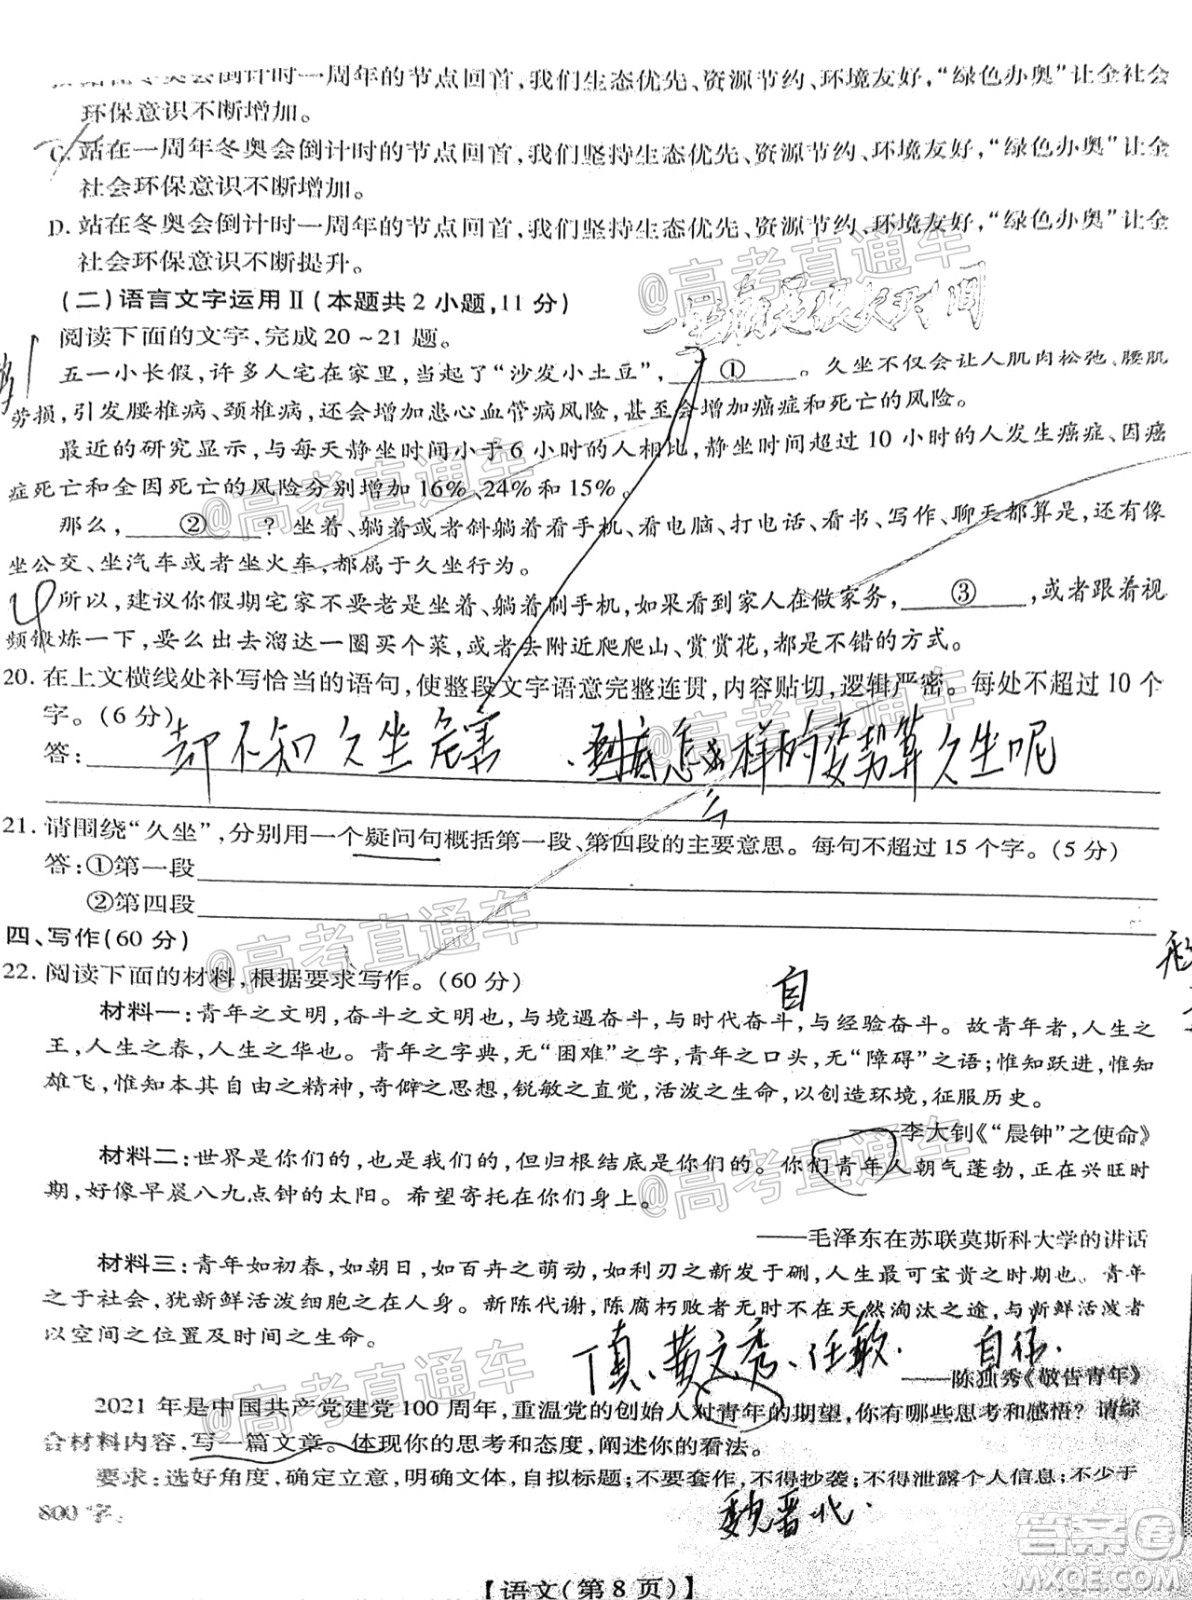 冬奥会倒计时一周年的节点回首,我们生态优先、资源节约、环境友好,“绿色办奥”让全社会
环保意识不断增加。
C. 站在一周年冬奥会倒计时的节点回首,我们坚持生态优先、资源节约、环境友好,“绿色办奥”让全
社会环保意识不断增加。
D. 站在冬奥会倒计时一周年的节点回首,我们坚持生态优先、资源节约、环境友好,“绿色办奥”让全
社会环保意识不断提升。
(二)语言文字运用Ⅱ(本题共2小题,11分)
阅读下面的文字,完成20~21题。
五一小长假,许多人宅在家里,当起了“沙发小土豆”,①。久坐不仅会让人肌肉松弛、腰肌
劳损,引发腰椎病、颈椎病,还会增加患心血管病风险,甚至会增加癌症和死亡的风险。
最近的研究显示,与每天静坐时间小于6小时的人相比,静坐时间超过10小时的人发生癌症、因癌
症死亡和全因死亡的风险分别增加16%、24%和15%。
那么,②?坐着、躺着或者斜躺着看手机、看电脑、打电话、看书、写作、聊天都算是,还有像
坐公交、坐汽车或者坐火车,都属于久坐行为。
所以,建议你假期宅家不要老是坐着、躺着刷手机,如果看到家人在做家务,③,或者跟着视
频锻炼一下,要么出去溜达一圈买个菜或者去附近爬爬山、赏赏花,都是不错的方式。
20. 在上文横线处补写恰当的语句,使整段文字语意完整连贯,内容贴切,逻辑严密。每处不超过10个
字。(6分)
答:却不知久坐危害 到底怎么样的姿势算久坐呢
21. 请围绕“久坐”,分别用一个疑问句概括第一段、第四段的主要意思。每句不超过15个字。(5分)
答:①第一段
②第四段
四、写作(60分)
22. 阅读下面的材料,根据要求写作。(60分)
自
材料一:青年之文明,奋斗之文明也,与境遇奋斗,与时代奋斗,与经验奋斗。故青年者,人生之
王,人生之春,人生之华也。青年之字典,无“困难”之字,青年之口头,无“障碍”之语;惟知跃进,惟知
雄飞,惟知本其自由之精神,奇僻之思想,锐敏之直觉,活泼之生命,以创造环境,征服历史。
——李大钊《“晨钟”之使命》
材料二:世界是你们的,也是我们的,但归根结底是你们的。你们青年人朝气蓬勃,正在兴旺时
期,好像早晨八九点钟的太阳。希望寄托在你们身上。
——毛泽东在苏联莫斯科大学的讲话
材料三:青年如初春,如朝日,如百卉之萌动,如利刃之新发于硎,人生最可宝贵之时期也。青年
之于社会,犹新鲜活泼细胞之在人身。新陈代谢,陈腐朽败者无时不在天然淘汰之途,与新鲜活泼者
以空间之位置及时间之生命。
丁真、黄文秀、任敏. 自信.
——陈独秀《敬告青年》
2021年是中国共产党建党100周年,重温党的创始人对青年的期望,你有哪些思考和感悟?请综
合材料内容,写一篇文章。体现你的思考和态度,阐述你的看法。
要求:选好角度,确定立意,明确文体,自拟标题;不要套作,不得抄袭;不得泄露个人信息;不少于
800字。
魏晋北.
【语文(第8页)】
@高考直通车
@高考直通车
@高考直通车
@高考直通车
@高考直通车
@高考直通车
@高考直通车
答案圈
MXQE.COM